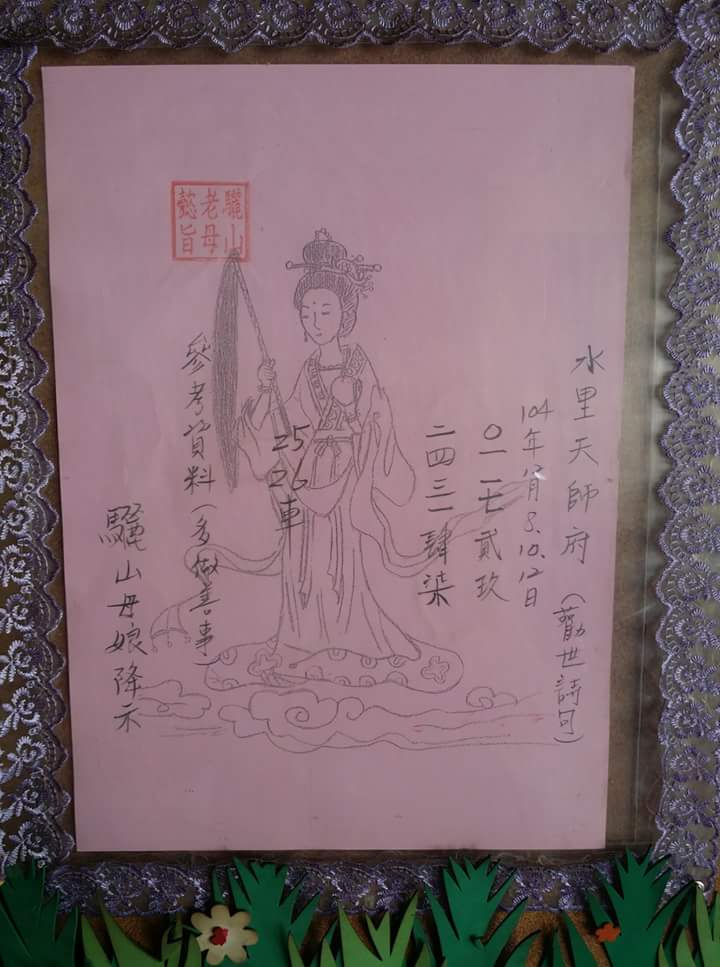 水里天師府(勸世詩句)
104年12月8.10.12日
〇一一七貳玖
二四三一肆柒
25
26車
驪山
老母
懿旨
參考資料(多做善事)
驪山母娘降示